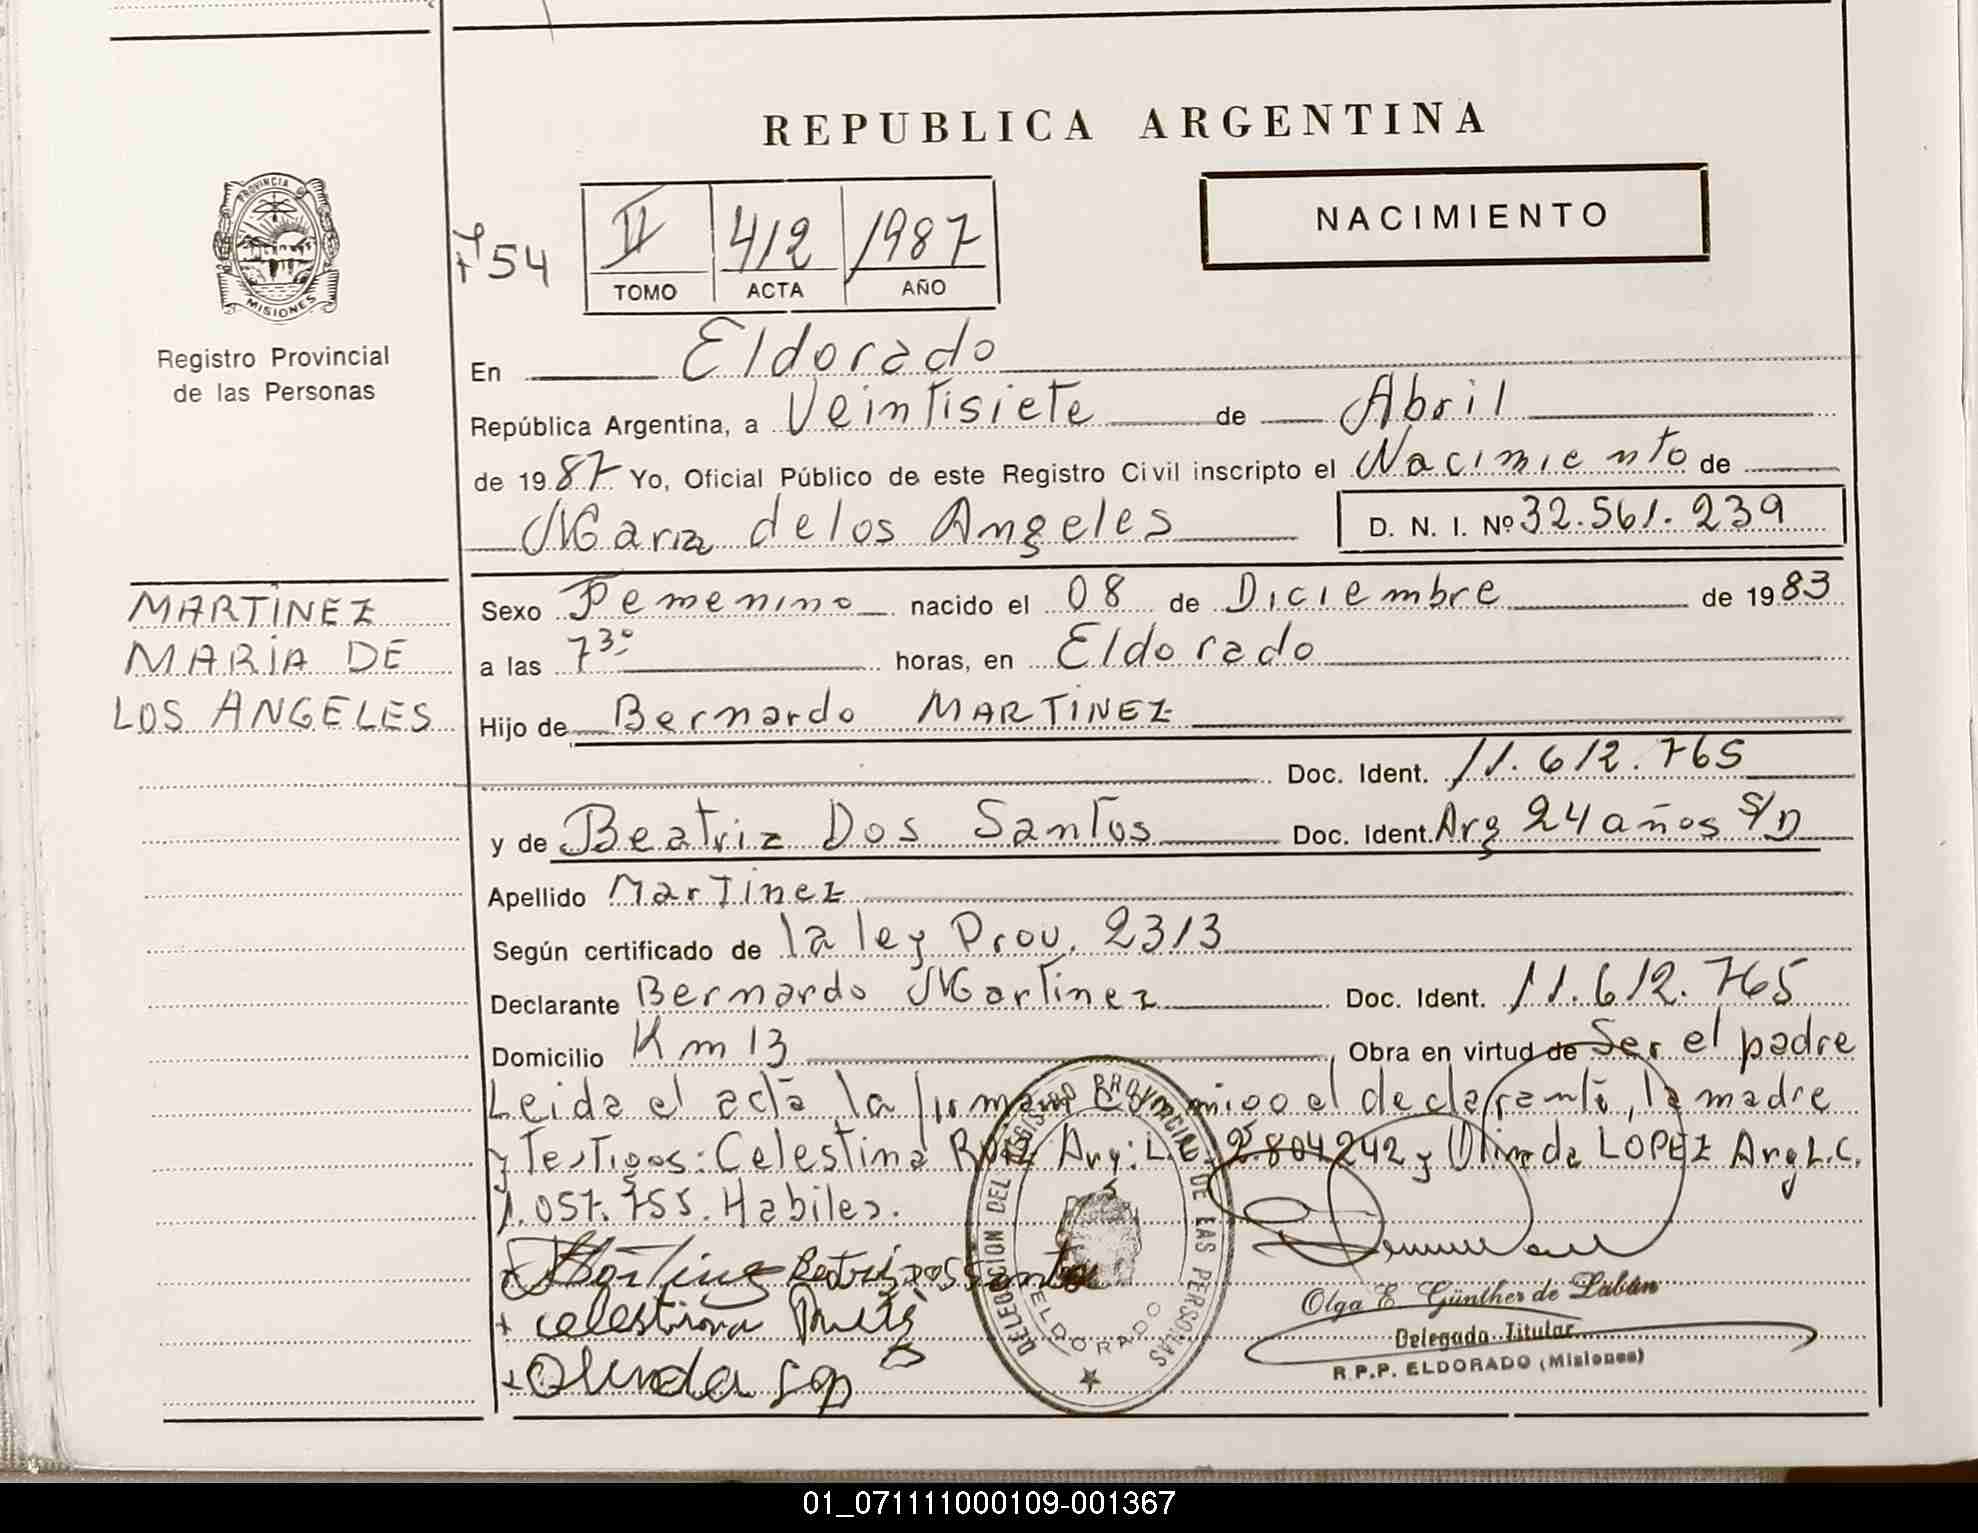 REPUBLICA ARGENTINA
PROVINCIA DE
MISIONES
Registro Provincial
de las Personas
54
II 412 1987
TOMO ACTA AÑO
NACIMIENTO
En Eldorado
República Argentina, a Veintisiete de Abril
de 1987 Yo, Oficial Público de este Registro Civil inscripto el Nacimiento de
Maria de los Angeles D. N. I. Nº 32.561.239
MARTINEZ
MARIA DE
LOS ANGELES
Sexo Femenino nacido el 08 de Diciembre de 1983
a las 7 30 horas, en Eldorado
Hijo de Bernardo MARTINEZ
Doc. Ident. 11.612.765
y de Beatriz Dos Santos Doc. Ident. Arg 24 años S/D
Apellido Martinez
Según certificado de la ley Prov. 2313
Declarante Bernardo Martinez Doc. Ident. 11.612.765
Domicilio Km 13 Obra en virtud de Ser el padre
Leida el acta la firman conmigo el declarante, la madre
y Testigos: Celestina RUIZ Arg: L.E. 2.804.242 y Olinda LOPEZ Arg L.C.
1.057.755. Habiles.
Beatriz Dos Santos
celestina
Olinda
DELEGACION DEL REGISTRO PROVINCIAL DE LAS PERSONAS
ELDORADO
Olga E. Günther de Labán
Delegada Titular
R.P.P. ELDORADO (Misiones)
01_071111000109-001367